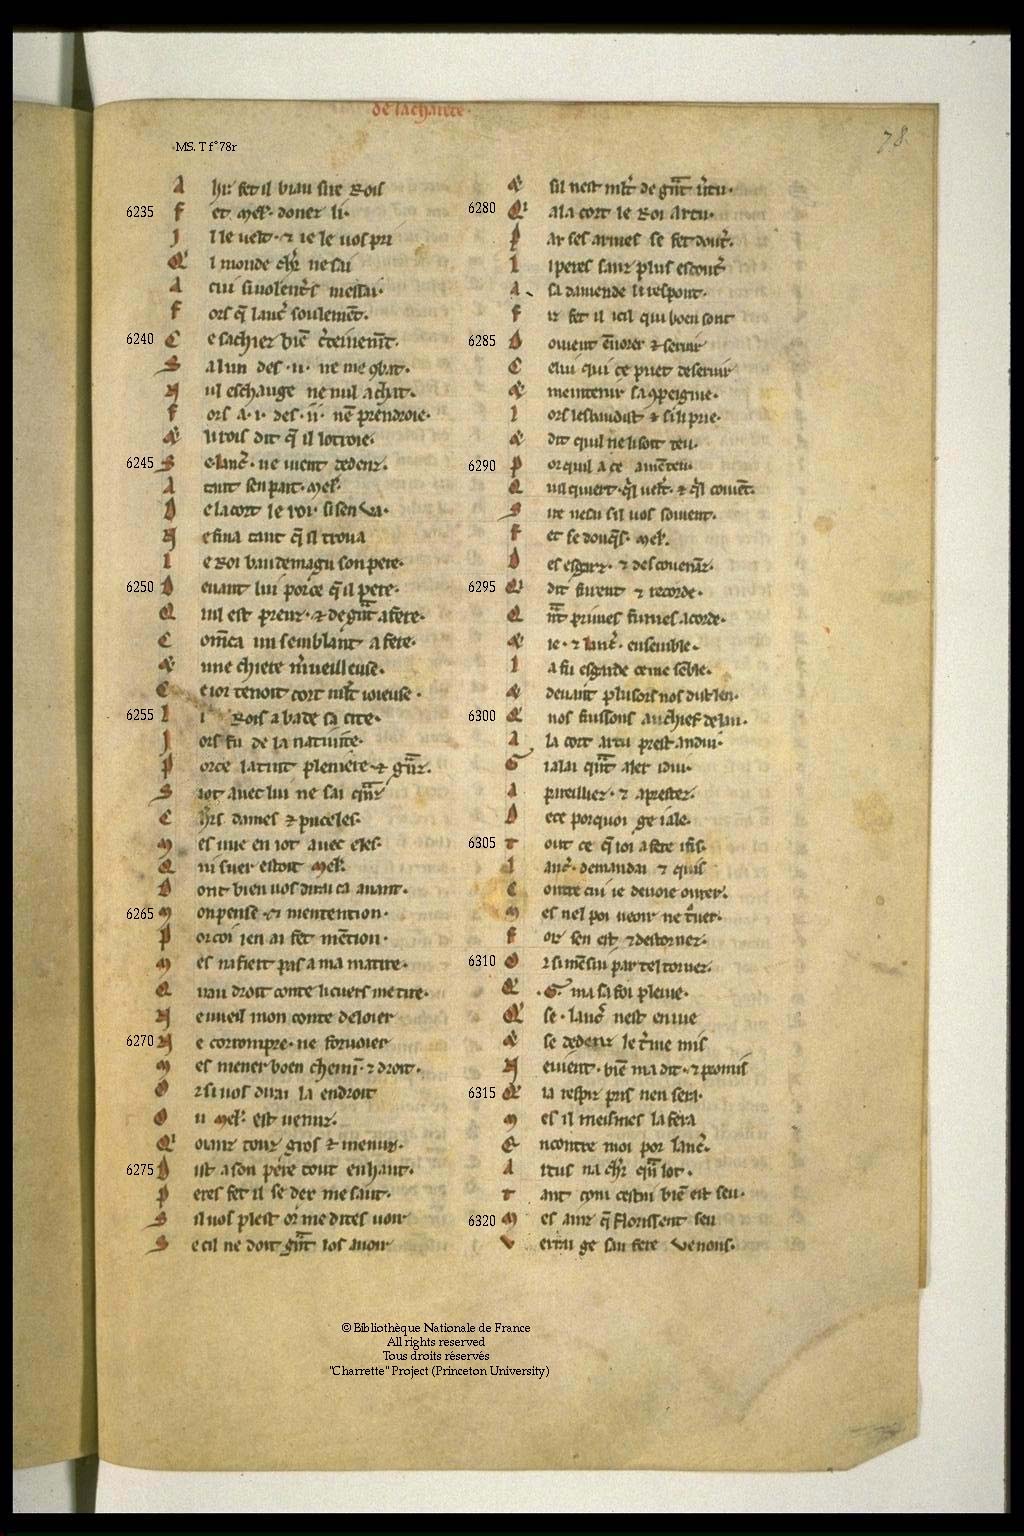 de lacharete.
78
MS. T f°78r
A hi fet il biau sire Rois
6235 F et mel'. donez li.
J l le velt. ⁊ ie le vos pri
Q' l monde ch'r ne sai
A cui si volent's messai.
F ors q̄ lanc' soulemēt.
6240 C e sachiez biē c'teinem̄t.
S a lun des .ii. ne me ꝯbat.
N ul eschange ne nul achat.
F ors a .i. des .ii. nē prendroie.
& li rois dit q̄ il lotroie.
6245 S e lanc'. ne vient dedenz.
A tant sen part. mel'.
D e la cort le roi si sen va.
N e fina tant q̄ il trova
L e Roi baudemagu son pere.
6250 D evant lui por ce q̄ il pere.
Q uil est preuz. ⁊ de gn̄t afere.
C om̄ca un semblant a fere.
& une chiere m'veilleuse.
C e ior tenoit cort ml't ioieuse.
6255 L i Rois a bade sa cite.
J ors fu de la nativite.
P or ce la tint pleniere ⁊ gn̄z.
S i ot avec lui ne sai qn̄z
C h'rs dames ⁊ puceles.
M es une en i ot avec eles.
Q ui suer estoit mel'.
D ont bien vos dirai ca avant.
6265 M on pense ⁊ mentention.
P or coi ien ai fet mētion.
M es nafiert pas a ma matire.
Q uau droit conte li cuers me tire.
N e vueil mon conte desloier
6270 N e corrompre. ne forvoier
M es mener boen chemī. ⁊ droit.
O r si vos dirai la endroit
O u mel'. est venuz.
Q' oianz touz gros ⁊ menuz.
6275 D ist a son pere tout en haut.
P eres fet il se dex me saut.
S il vos plest or me dites voir
S e cil ne doit gn̄t ios avoir
& sil nest ml't de gn̄t v'tu.
6280 Q' a la cort le Roi artu.
P ar ses armes se fet dout'.
L i peres sanz plus escout'
A sa demende li respont.
F iz fet il icil qui boen sont
6285 D oivent ēnorer ⁊ servir
C elui qui ce puet deservir
& meintenir sa ꝯpeignie.
L ors lesbaudist ⁊ si li prie.
& dit quil ne li soit teu.
6290 P or quil a ce amēteu.
Q uil quiert. q'l velt. ⁊ q'l covēt.
S ire ne sai sil vos sovient.
F et se donq̄s. mel'.
D es esgarz. ⁊ des covenāz.
6295 Q' dit furent ⁊ recorde.
Q n̄t primes fumes acorde.
& ie. ⁊ lanc'. ensemble.
L a fu esgarde ce me sēble.
& devant plusors nos dist len.
6300 Q nos fussons au chief de lan.
A la cort artu prest andui.
G i alai qn̄t aler i dui.
A pareillier. ⁊ aprester.
D e ce por quoi ge i ale.
6305 T out ce q̄ ioi a fere i fis.
L anc'. demandai ⁊ quis
C ontre cui ie devoie ovrer.
M es nel poi veoir ne t'ver.
F oiz sen est ⁊ destornez.
6310 O r si mē sui par tel tornez.
Q' .G. ma sa foi plevie.
Q' se. lanc' nest en vie
& se dedenz le t'me mis
N e vient. biē ma dit. ⁊ promis
6315 Q' ia respiz pris nen sera.
M es il meismes la fera
E ncontre moi por lanc'.
A rtus na ch'r qn̄ lot.
T ant com cestui biē est seu.
6320 M es ainz q̄ florissent seu
V errai ge sau fere venons.
©Bibliothèque Nationale de France
All rights reserved
Tous droits réservés
"Charrette" Project (Princeton University)